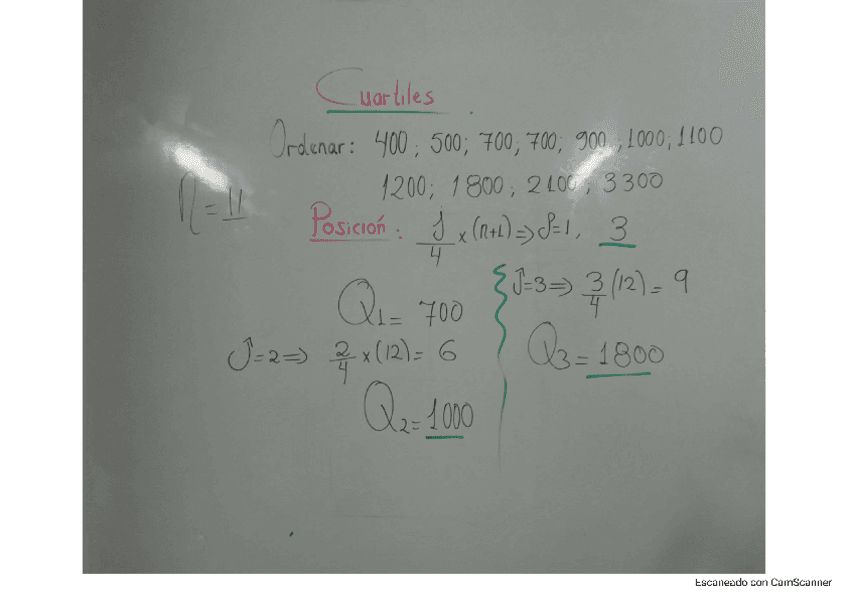 Cuartiles
Ordenar: 400; 500; 700; 700; 900; 1000; 1100
1200; 1800; 2100; 3300
n = 11
Posición: J/4 x (n+1) => J=1, 3
Q1 = 700
J=2 => 2/4 x (12) = 6
Q2 = 1000
J=3 => 3/4 (12) = 9
Q3 = 1800
Escaneado con CamScanner